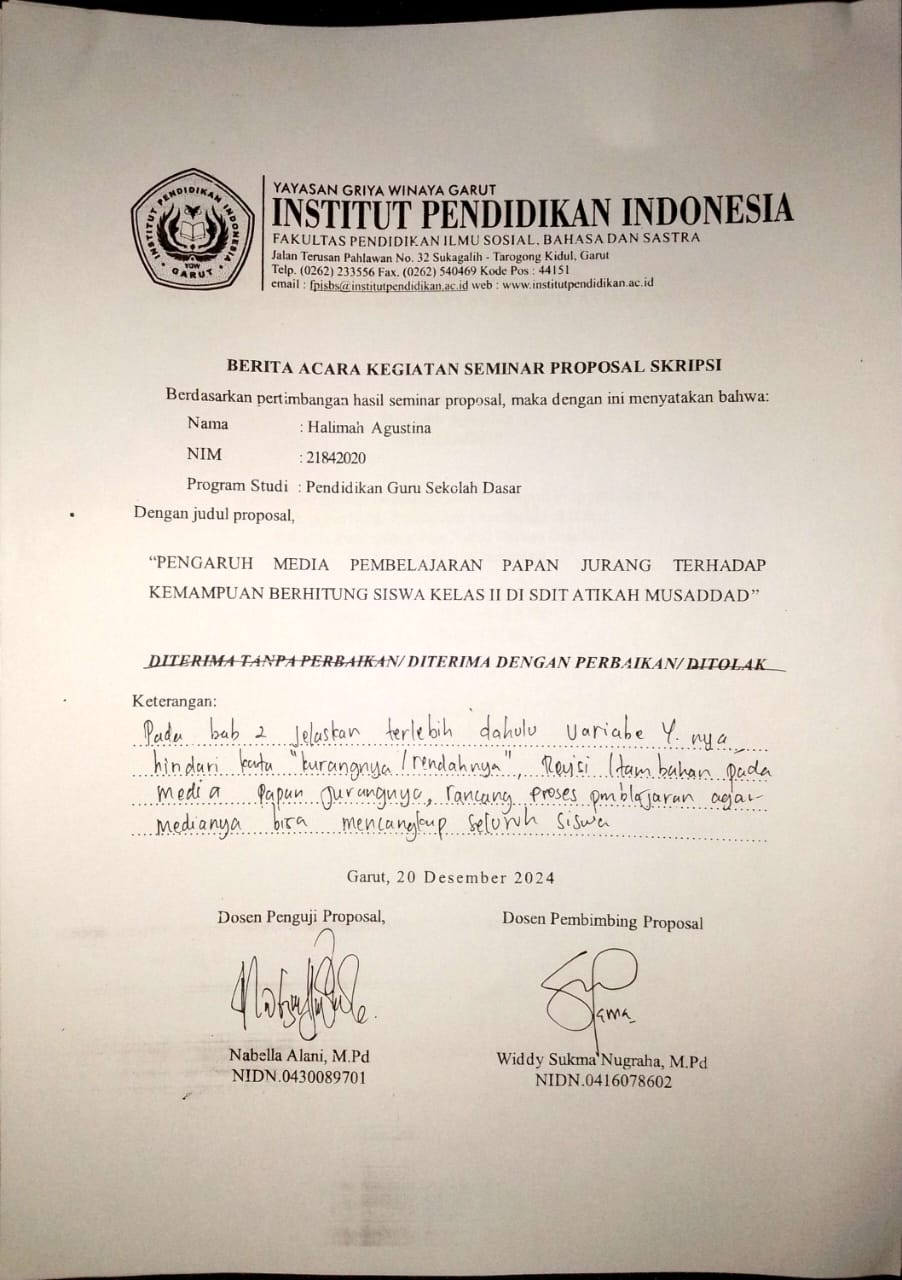 INSTITUT PENDIDIKAN INDONESIA
YGW
GARUT
YAYASAN GRIYA WINAYA GARUT
INSTITUT PENDIDIKAN INDONESIA
FAKULTAS PENDIDIKAN ILMU SOSIAL, BAHASA DAN SASTRA
Jalan Terusan Pahlawan No. 32 Sukagalih - Tarogong Kidul, Garut
Telp. (0262) 233556 Fax. (0262) 540469 Kode Pos : 44151
email : fpisbs@institutpendidikan.ac.id web : www.institutpendidikan.ac.id
BERITA ACARA KEGIATAN SEMINAR PROPOSAL SKRIPSI
Berdasarkan pertimbangan hasil seminar proposal, maka dengan ini menyatakan bahwa:
Nama : Halimah Agustina
NIM : 21842020
Program Studi : Pendidikan Guru Sekolah Dasar
Dengan judul proposal,
“PENGARUH MEDIA PEMBELAJARAN PAPAN JURANG TERHADAP
KEMAMPUAN BERHITUNG SISWA KELAS II DI SDIT ATIKAH MUSADDAD”
DITERIMA TANPA PERBAIKAN/ DITERIMA DENGAN PERBAIKAN/ DITOLAK
Keterangan:
Pada bab 2 jelaskan terlebih dahulu Variabe Y. nya
hindari kata "kurangnya / rendahnya", Revisi / tambahan pada
media papan jurangnya, rancang proses pmblajaran agar
medianya bisa mencangkup seluruh siswa
Garut, 20 Desember 2024
Dosen Penguji Proposal,
Dosen Pembimbing Proposal
Nabella Alani, M.Pd
NIDN.0430089701
Widdy Sukma Nugraha, M.Pd
NIDN.0416078602